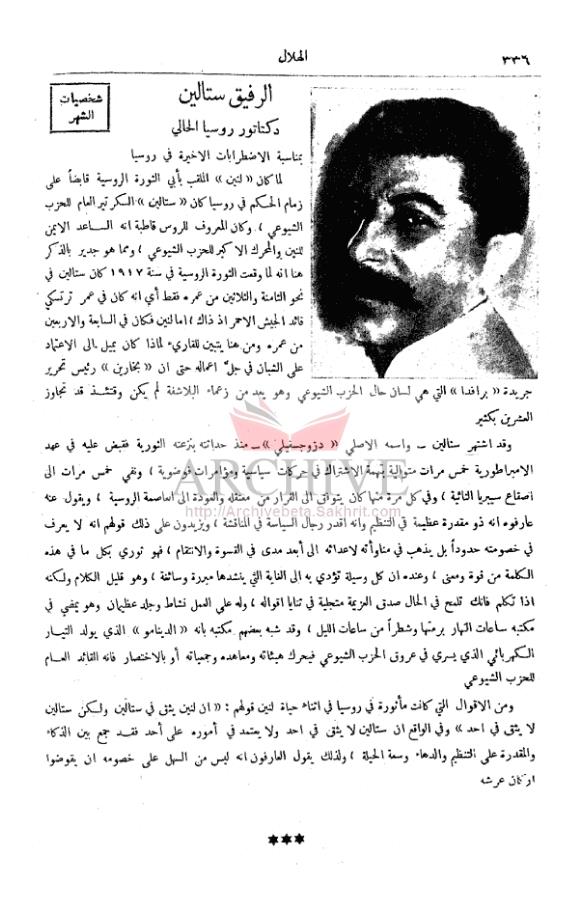 ٣٣٦
الهلال
شخصيات
الشهر
الرفيق ستالين
دكتاتور روسيا الحالي
بمناسبة الاضطرابات الاخيرة في روسيا
لما كان « لنين » الملقب بأبي الثورة الروسية قابضاً على
زمام الحكم في روسيا كان « ستالين » السكرتير العام للحزب
الشيوعي ، وكان المعروف للروس قاطبة انه الساعد الايمن
للنين والمحرك الاكبر للحزب الشيوعي ، ومما هو جدير بالذكر
هنا انه لما وقعت الثورة الروسية في سنة ١٩١٧ كان ستالين في
نحو الثامنة والثلاثين من عمره فقط أي انه كان في عمر ترتسكي
قائد الجيش الاحمر اذ ذاك ، اما لنين فكان في السابعة والاربعين
من عمره ومن هنا يتبين للقاريء لماذا كان يميل الى الاعتماد
على الشبان في جلّ اعماله حتى ان « بخارين » رئيس تحرير
جريدة « برافدا » التي هي لسان حال الحزب الشيوعي وهو يعد من زعماء البلاشفة لم يكن وقتئذ قد تجاوز
العشرين بكثير
وقد اشتهر ستالين ــ واسمه الاصلي « دزوجشفيلي » ــ منذ حداثته بنزعته الثورية فقبض عليه في عهد
الامبراطورية خمس مرات متوالية بتهمة الاشتراك في حركات سياسية ومؤامرات فوضوية ، ونفي خمس مرات الى
اصقاع سيبريا النائية ، وفي كل مرة منها كان يتوفق الى الفرار من معتقله والعودة الى العاصمة الروسية ، ويقول عنه
عارفوه انه ذو مقدرة عظيمة في التنظيم وانه اقدر رجال السياسة في المناقشة ، ويزيدون على ذلك قولهم انه لا يعرف
في خصومته حدوداً بل يذهب في مناوأته لاعدائه الى أبعد مدى في القسوة والانتقام ، فهو ثوري بكل ما في هذه
الكلمة من قوة ومعنى ، وعنده ان كل وسيلة تؤدي به الى الغاية التي ينشدها مبررة وسائغة ، وهو قليل الكلام ولكنه
اذا تكلم فانك تلمح في الحال صدق العزيمة متجلية في ثنايا اقواله ، وله على العمل نشاط وجلد عظيمان وهو يمضي في
مكتبه ساعات النهار برمتها وشطراً من ساعات الليل ، وقد شبه بعضهم مكتبه بانه « الدينامو » الذي يولد التيار
الكهربائي الذي يسري في عروق الحزب الشيوعي فيحرك هيئاته ومعاهده وجمعياته أو بالاختصار فانه القائد العام
للحزب الشيوعي
ومن الاقوال التي كانت مأثورة في روسيا في اثناء حياة لنين قولهم : « ان لنين يثق في ستالين ولكن ستالين
لا يثق في احد » وفي الواقع ان ستالين لا يثق في احد ولا يعتمد في أموره على أحد فقد جمع بين الذكاء
والمقدرة على التنظيم والدهاء وسعة الحيلة ، ولذلك يقول العارفون انه ليس من السهل على خصومه ان يقوضوا
اركان عرشه
***
ARCHIVE
http://Archivebeta.Sakhrit.com